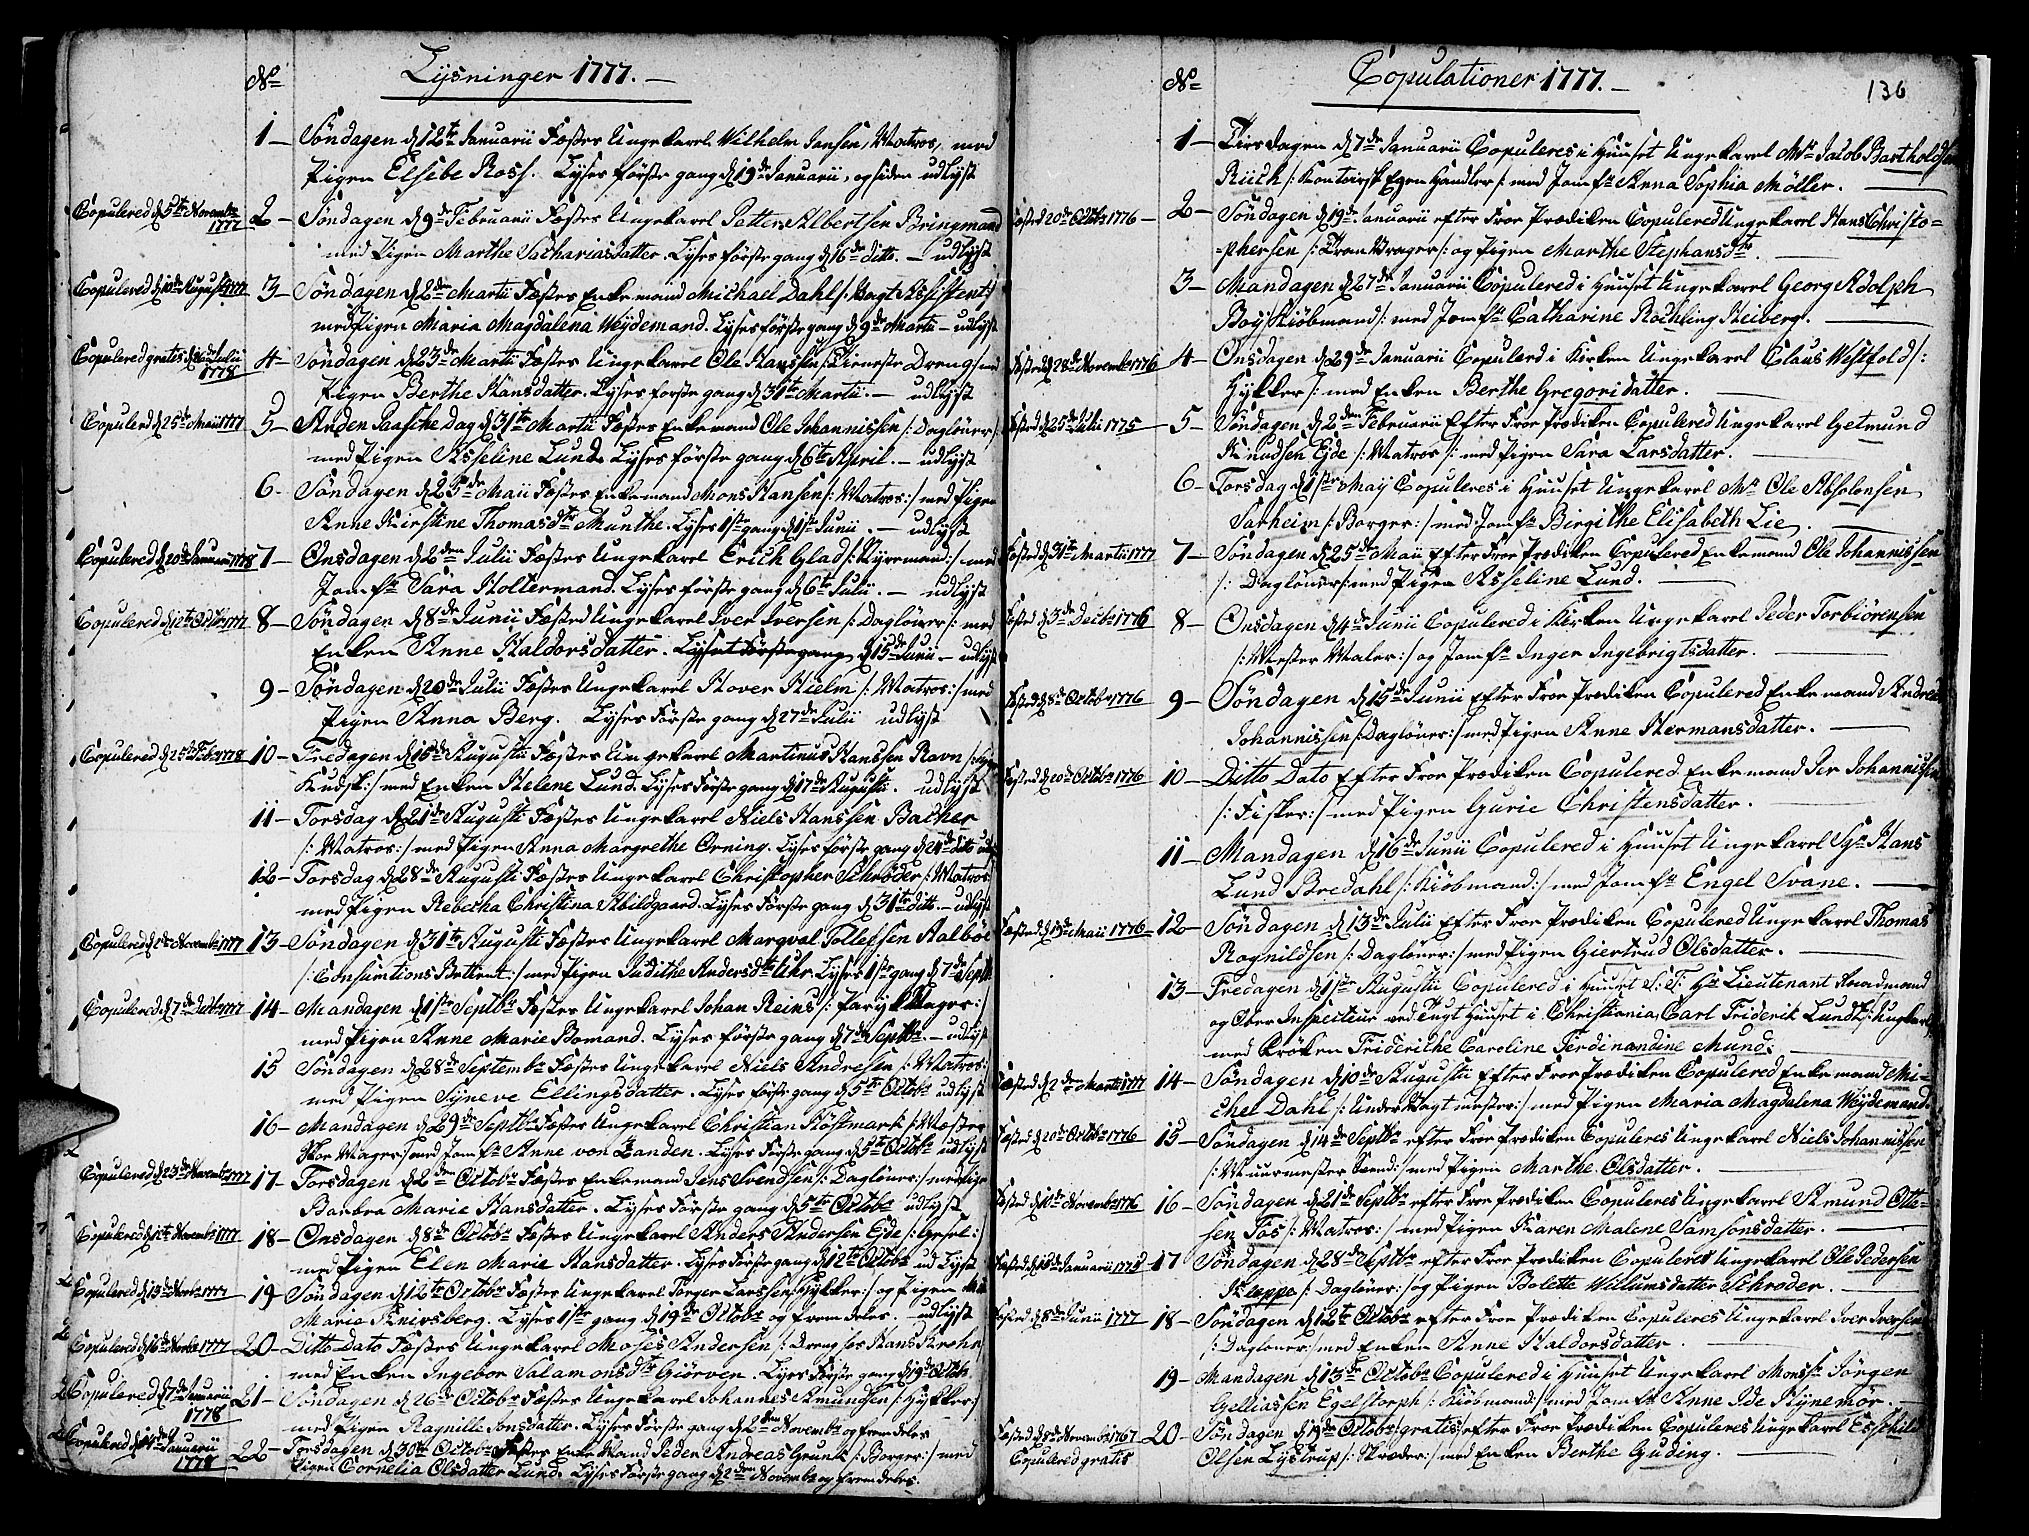 Lysninger 1777.
No
1 – Söndagen d 12te Januarii Fæstes Ungekarl Wilhelm Jansen, Matros, med
Pigen Elsebe Ross. Lyses förste gang d 19de Januarii, og siden udlyst
Copulered d 5te Novembr 1777
2 – Söndagen d 9de Februarii Fæstes Ungekarl Petter Albertsen Bringmand
med Pigen Marthe Sachariasdatter. Lyses förste gang d 16de ditto. – udlyst
Copulered d 10de August 1777
3 – Söndagen d 2den Martii Fæstes Enkemand Michael Dahl /: Vagt Assistent :/
med Pigen Maria Magdalena Weydemand. Lyses förste gang d 9de Martii – udlyst
Copulered gratis d 26de Julii 1778
4 – Söndagen d 23de Martii Fæstes Ungekarl Ole Hanssen /: Tieneste Dreng :/ med
Pigen Berthe Hansdatter. Lyses förste gang d 31te Martii. – udlyst
Copulerd d 25de Maii 1777
5 – Anden Paaske Dag d 31te Martii Fæstes Enkemand Ole Johannissen /: Daglöner :/
med Pigen Asseline Lund. Lyses förste gang d 6te April. – udlyst
6 – Söndagen d 25de Maii Fæstes Enkemand Mons Hansen /: Matros :/ med Pigen
Anne Kirstine Thomasdtr Munthe. Lyses 1ste gang d 1ste Junii. – udlyst
Copulered d 20de Januar 1778
7 – Onsdagen d 2den Julii Fæstes Ungekarl Erich Glad /: Styrmand :/ med
Jomfr Sara Holtermand. Lyses förste gang d 6te Julii. – udlyst
Copulered d 12te Octbr 1777
8 – Söndagen d 8de Junii Fæsted Ungekarl Iver Iversen /: Daglöner :/ med
Enken Anne Haldorsdatter. Lyset Förste gang d 15de Junii – udlyst
9 – Söndagen d 20de Julii Fæstes Ungekarl Hover Hielm /: Matros :/ med
Pigen Anna Berg. Lyses Förste gang d 27de Julii udlyst
Copulered d 25de Febr 1778
10 – Fredagen d 15de Augustii Fæstes Ungekarl Martinus Hanssen Ravn
Kudsk :/ med Enken Helene Lund. Lyses Förste gang d 17de Augusti. udlyst
11 – Torsdag d 21de Augusti Fæstes Ungekarl Niels Hanssen Bacher
/: Matros :/ med Pigen Anna Margrethe Orning. Lyses förste gang d 24de dito udl
12 – Torsdag d 28de Augusti Fæstes Ungekarl Christopher Schröder /: Matros
med Pigen Rebecha Christina Abildgaard. Lyses Förste gang d 31te ditto. – udlyst
Copulered d 2de Novembr 1777
13 – Söndagen d 31te Augusti Fæstes Ungekarl Margval Tollefsen Aalböe
/: Consumtions Betient :/ med Pigen Judithe Andersdtr Uhr. Lyses 1ste gang d 7de Septbr
Copulered d 7de Decbr 1777
14 – Mandagen d 1ste Septbr Fæstes Ungekarl Johan Reins /: Parykmager :/
med Pigen Anne Marie Bomand. Lyses förste gang d 7de Septbr. – udlyst
15 Söndagen d 28de Septembr Fæstes Ungekarl Niels Andresen /: Matros :
med Pigen Syneve Ellingsdatter. Lyses förste gang d 5te Octobr udlyst
16 – Mandagen d 29de Septbr Fæstes Ungekarl Christian Höstmark /: Mester
Skoe Mager :/ med Jomfr Anne von Zanden. Lyses Förste gang d 5te Octobr udlyst
Copulered d 23de Novembr 1777
17 – Torsdagen d 2den Octobr Fæstes Enkemand Jens Svendsen /: Daglöner :/ med Pige
Barbra Marie Hansdatter. Lyses Förste gang d 5te Octobr udlyst
Copulered d 12te Novembr 1777
18 – Onsdagen d 8de Octobr Fæstes Ungekarl Anders Andersen Eide /: Gesel :/
med Pigen Elen Marie Hansdatter. Lyses Förste gang d 12te Octobr udlyst
Copulered d 13de Novbr 1777
19 – Söndagen d 12te Octobr Fæstes Ungekarl Jörgen Larssen /: Hykker :/ og Pigen
Marie Knivsberg. Lyses 1ste gang d 19de Octobr og fremdeles. – udlyst
Copulered d 16de Novbr 1777
20 – Ditto Dato Fæstes Ungekarl Moses Andersen /: Dreng hos Hans Krohn
med Enken Ingebor Salamonsdtr Giörven. Lyses Förste gang d 19de Octobr
Copulered d 7de Januarii 1778
21 – Söndagen d 26de Octobr Fæstes Ungekarl Johannes Amundsen /: Hykker :/
med Pigen Ragnille Jonsdatter. Lyses Förste gang d 2den Novembr og fremdeles
Copulered d Januarii 1778
22 – Torsdagen d 30te Octobr Fæstes Enke Mand Peder Andreas Grunt /: Borger :/ med
Pigen Cornelia Olsdatter Lund. Lyses Förste gang d 2den Novembr og fremdeles.
Copulationer 1777.
136
No
1 – Tirsdagen d 7de Januarii Copuleres i Huuset Ungekarl Mr Jacob Bartholdsen
Rück /: Kontoirsk Egen Handler :/ med Jomfr Anna Sophia Möller.
Fæsted 20de Octbr 1776
2 – Söndagen d 19de Januarii efter Froe Prædiken Copulered Ungekarl Hans Christo-
phersen /: Tran Vrager :/ og Pigen Marthe Stephansdtr.
3 – Mandagen d 27de Januarii Copulered i Huuset Ungekarl Georg Adolph
Boy /: Kiöbmand :/ med Jomfr Catharine Rochling Heiberg.
Fæsted d 28de November 1776
4 – Onsdagen d 29de Januarii Copulerd i Kirken Ungekarl Claus Westfold /:
Hykker :/ med Enken Berthe Gregorisdatter.
Fæsted d 25de Julii 1775
5 – Söndagen d 2den Februarii Efter Froe Prædiken Copulered Ungekarl Getmund
Knudsen Eide /: Matros :/ med Pigen Sara Larsdatter.
6 – Torsdag d 1ste May Copuleres i Huuset Ungekarl Mr Ole Absolonsen
Sarheim /: Borger :/ med Jomfr Birgithe Elisabeth Lie.
Fæsted d 31te Martii 1777
7 – Söndagen d 25de Maii Efter Froe Prædiken Copulered Enkemand Ole Johannissen
/: Daglöner :/ med Pigen Asseline Lund.
Fæsted d 3de Decbr 1776
8 – Onsdagen d 4de Junii Copulered i Kirken Ungekarl Peder Torbiörensen
/: Mester Maler :/ og Jomfr Inger Ingebrigtsdatter.
Fæsted d 8de Octobr 1776
9 – Söndagen d 15de Junii Efter Froe Prædiken Copulered Enkemand Andreas
Johannissen /: Daglöner :/ med Pigen Anne Hermansdatter.
Fæsted d 20de Octobr 1776
10 – Ditto Dato Efter Froe Prædiken Copulered Enkemand Per Johannissen
/: Fisker :/ med Pigen Gurie Christensdatter.
11 – Mandagen d 16de Junii Copulered i Huuset Ungekarl Sgr Hans
Lund Bredahl /: Kiöbmand :/ med Jomfr Engel Svane.
Fæsted d 15de Maii 1776
12 – Söndagen d 13de Julii Efter Froe Prædiken Copulered Ungekarl Thomas
Rognildsen /: Daglöner :/ med Pigen Giertrud Olsdatter.
13 – Fredagen d 1ste Augustii Copulered i Huuset S: T: Hr Lieutenant
og Ober Inspecteur ved Tugt Huuset i Christiania, Carl Friderik Lundt /: Ungkarl
med Fröken Friderikhe Caroline Ferdinandine Mund.
Fæsted d 2de Martii 1777
14 – Söndagen d 10de Augustii Efter Froe Prædiken Copulered Enkemand Mi-
chel Dahl /: Under Vagtmester :/ med Pigen Maria Magdalena Weydemand.
Fæsted d 20de Octobr 1776
15 – Söndagen d 14de Septbr efter Froe Prædiken Copuleres Ungekarl Niels Johannissen
/: Muurmester Svend :/ med Pigen Marthe Olsdatter.
Fæsted d 10de Novembr 1776
16 – Söndagen d 21de Septbr efter Froe Prædiken Copuleres Ungekarl Amund Otte-
sen Fos /: Matros :/ med Pigen Karen Malene Samsonsdatter.
Fæsted d Januarii
17 Söndagen d 28de Septbr efter Froe Prædiken Copuleret Ungekarl Ole Pedersen
Kleppe /: Daglöner :/ og Pigen Bolette Willumsdatter Schroder.
Fæsted d 8de Junii 1777
18 – Söndagen d 12te Octobr efter Froe Prædiken Copuleres Ungekarl Iver Iversen
/: Daglöner :/ med Enken Anne Haldorsdatter.
19 – Mandagen d 13de Octobr Copulered i Huuset Ungekarl Monsr Jörgen
Gelliassen Egelstorph /: Kiöbmand :/ med Jomfr Anne Ide Rynemör.
Fæsted d 8de Novembr 1767
Copulered gratis
20 – Söndagen d 19de Octobr /: gratis :/ efter Froe Prædiken Copuleres Ungekarl Eschild
Olsen Lystrup /: Skræder :/ med Enken Berthe Guding.